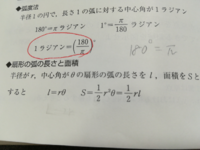 ◆弧度法
半径1の円で，長さ1の弧に対する中心角が1ラジアン
180°=πラジアン　1°=π/180ラジアン
1ラジアン=(180/π)°
180°=π
◆扇形の弧の長さと面積
半径が r，中心角がθの扇形の弧の長さを l，面積を Sと
すると　l=rθ　S=1/2 r²θ=1/2 rl